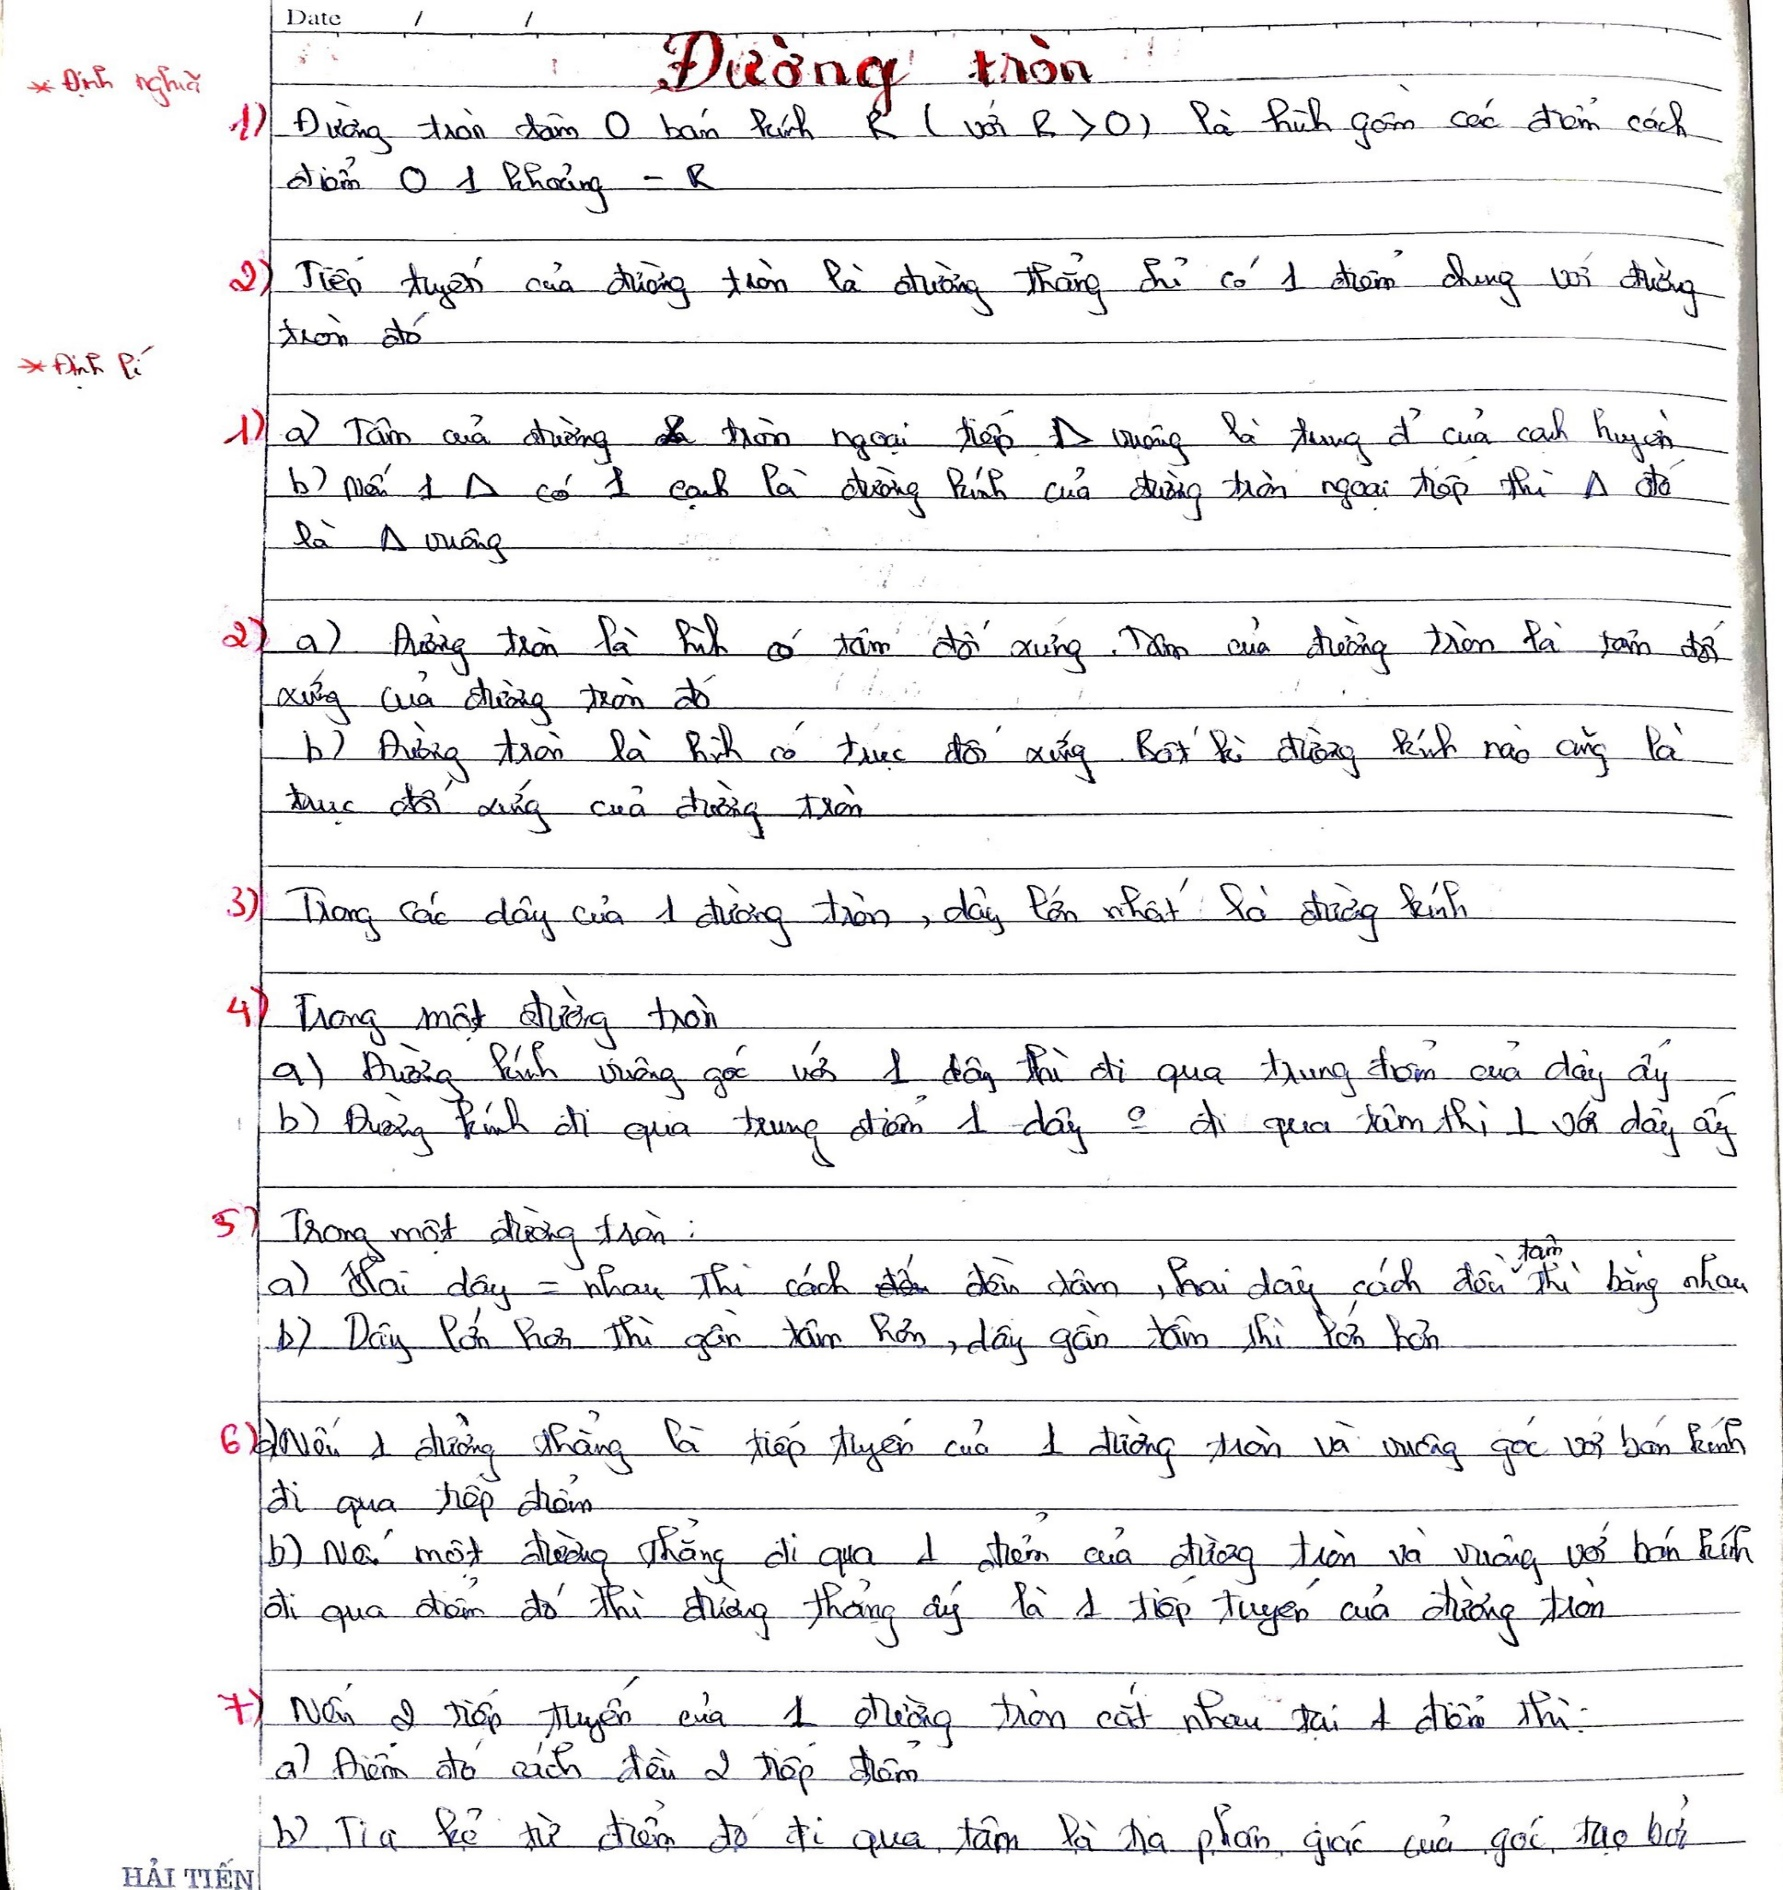 Date / /
Đường tròn
* Định nghĩa
1) Đường tròn tâm O bán kính R (với R > O) là hình gồm các điểm cách
điểm O 1 khoảng = R
2) Tiếp tuyến của đường tròn là đường thẳng chỉ có 1 điểm chung với đường
tròn đó
* Định lí
1) a) Tâm của đường tròn ngoại tiếp Δ vuông là trung đ' của cạnh huyền
b) Nếu 1 Δ có 1 cạnh là đường kính của đường tròn ngoại tiếp thì Δ đó
là Δ vuông
2) a) Đường tròn là hình có tâm đối xứng. Tâm của đường tròn là tâm đối
xứng của đường tròn đó
b) Đường tròn là hình có trục đối xứng. Bất kì đường kính nào cũng là
trục đối xứng của đường tròn
3) Trong các dây của 1 đường tròn, dây lớn nhất là đường kính
4) Trong một đường tròn
a) Đường kính vuông góc với 1 dây thì đi qua trung điểm của dây ấy
b) Đường kính đi qua trung điểm 1 dây đi qua tâm thì ⊥ với dây ấy
5) Trong một đường tròn:
a) Hai dây = nhau thì cách đều tâm, hai dây cách đều tâm thì bằng nhau
b) Dây lớn hơn thì gần tâm hơn, dây gần tâm thì lớn hơn
6) a) Nếu 1 đường thẳng là tiếp tuyến của 1 đường tròn và vuông góc với bán kính
đi qua tiếp điểm
b) Nếu một đường thẳng đi qua 1 điểm của đường tròn và vuông với bán kính
đi qua điểm đó thì đường thẳng ấy là 1 tiếp tuyến của đường tròn
7) Nếu 2 tiếp tuyến của 1 đường tròn cắt nhau tại 1 điểm thì:
a) Điểm đó cách đều 2 tiếp điểm
b) Tia kẻ từ điểm đó đi qua tâm là tia phân giác của góc tạo bởi
HẢI TIẾN